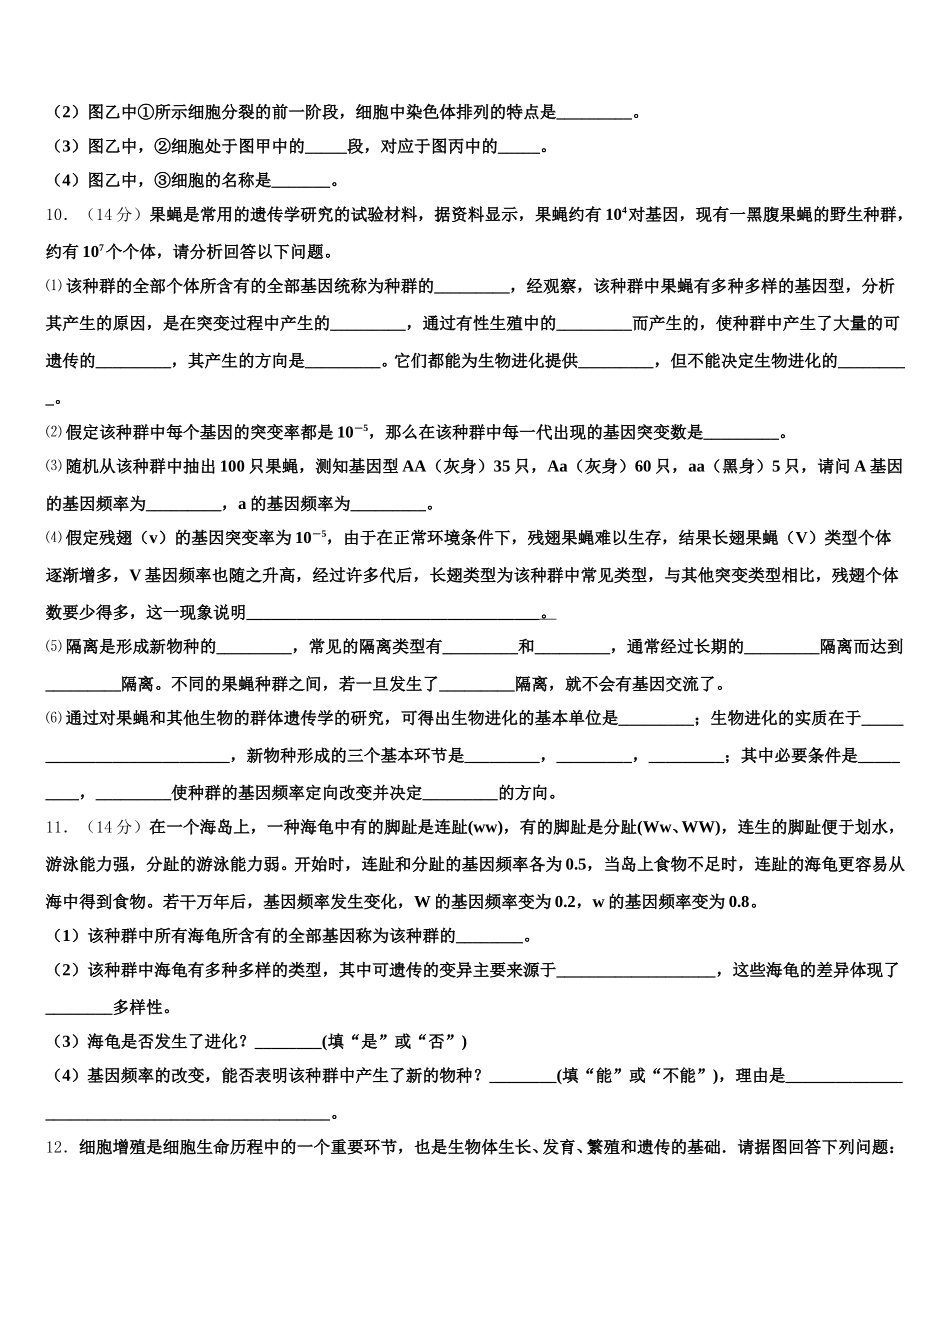 （2）图乙中①所示细胞分裂的前一阶段，细胞中染色体排列的特点是_________。
（3）图乙中，②细胞处于图甲中的_____段，对应于图丙中的_____。
（4）图乙中，③细胞的名称是_______。
10．（14 分）果蝇是常用的遗传学研究的试验材料，据资料显示，果蝇约有 10⁴对基因，现有一黑腹果蝇的野生种群，
约有 10⁷个个体，请分析回答以下问题。
⑴ 该种群的全部个体所含有的全部基因统称为种群的_________，经观察，该种群中果蝇有多种多样的基因型，分析
其产生的原因，是在突变过程中产生的_________，通过有性生殖中的_________而产生的，使种群中产生了大量的可
遗传的_________，其产生的方向是_________。它们都能为生物进化提供_________，但不能决定生物进化的________
_。
⑵ 假定该种群中每个基因的突变率都是 10⁻⁵，那么在该种群中每一代出现的基因突变数是_________。
⑶ 随机从该种群中抽出 100 只果蝇，测知基因型 AA（灰身）35 只，Aa（灰身）60 只，aa（黑身）5 只，请问 A 基因
的基因频率为_________，a 的基因频率为_________。
⑷ 假定残翅（v）的基因突变率为 10⁻⁵，由于在正常环境条件下，残翅果蝇难以生存，结果长翅果蝇（V）类型个体
逐渐增多，V 基因频率也随之升高，经过许多代后，长翅类型为该种群中常见类型，与其他突变类型相比，残翅个体
数要少得多，这一现象说明___________________________________。
⑸ 隔离是形成新物种的_________，常见的隔离类型有_________和_________，通常经过长期的_________隔离而达到
_________隔离。不同的果蝇种群之间，若一旦发生了_________隔离，就不会有基因交流了。
⑹ 通过对果蝇和其他生物的群体遗传学的研究，可得出生物进化的基本单位是_________；生物进化的实质在于_____
______________________，新物种形成的三个基本环节是_________，_________，_________；其中必要条件是_____
____，_________使种群的基因频率定向改变并决定_________的方向。
11．（14 分）在一个海岛上，一种海龟中有的脚趾是连趾(ww)，有的脚趾是分趾(Ww、WW)，连生的脚趾便于划水，
游泳能力强，分趾的游泳能力弱。开始时，连趾和分趾的基因频率各为 0.5，当岛上食物不足时，连趾的海龟更容易从
海中得到食物。若干万年后，基因频率发生变化，W 的基因频率变为 0.2，w 的基因频率变为 0.8。
（1）该种群中所有海龟所含有的全部基因称为该种群的________。
（2）该种群中海龟有多种多样的类型，其中可遗传的变异主要来源于___________________，这些海龟的差异体现了
________多样性。
（3）海龟是否发生了进化？________(填“是”或“否”)
（4）基因频率的改变，能否表明该种群中产生了新的物种？________(填“能”或“不能”)，理由是______________
__________________________________。
12．细胞增殖是细胞生命历程中的一个重要环节，也是生物体生长、发育、繁殖和遗传的基础．请据图回答下列问题：